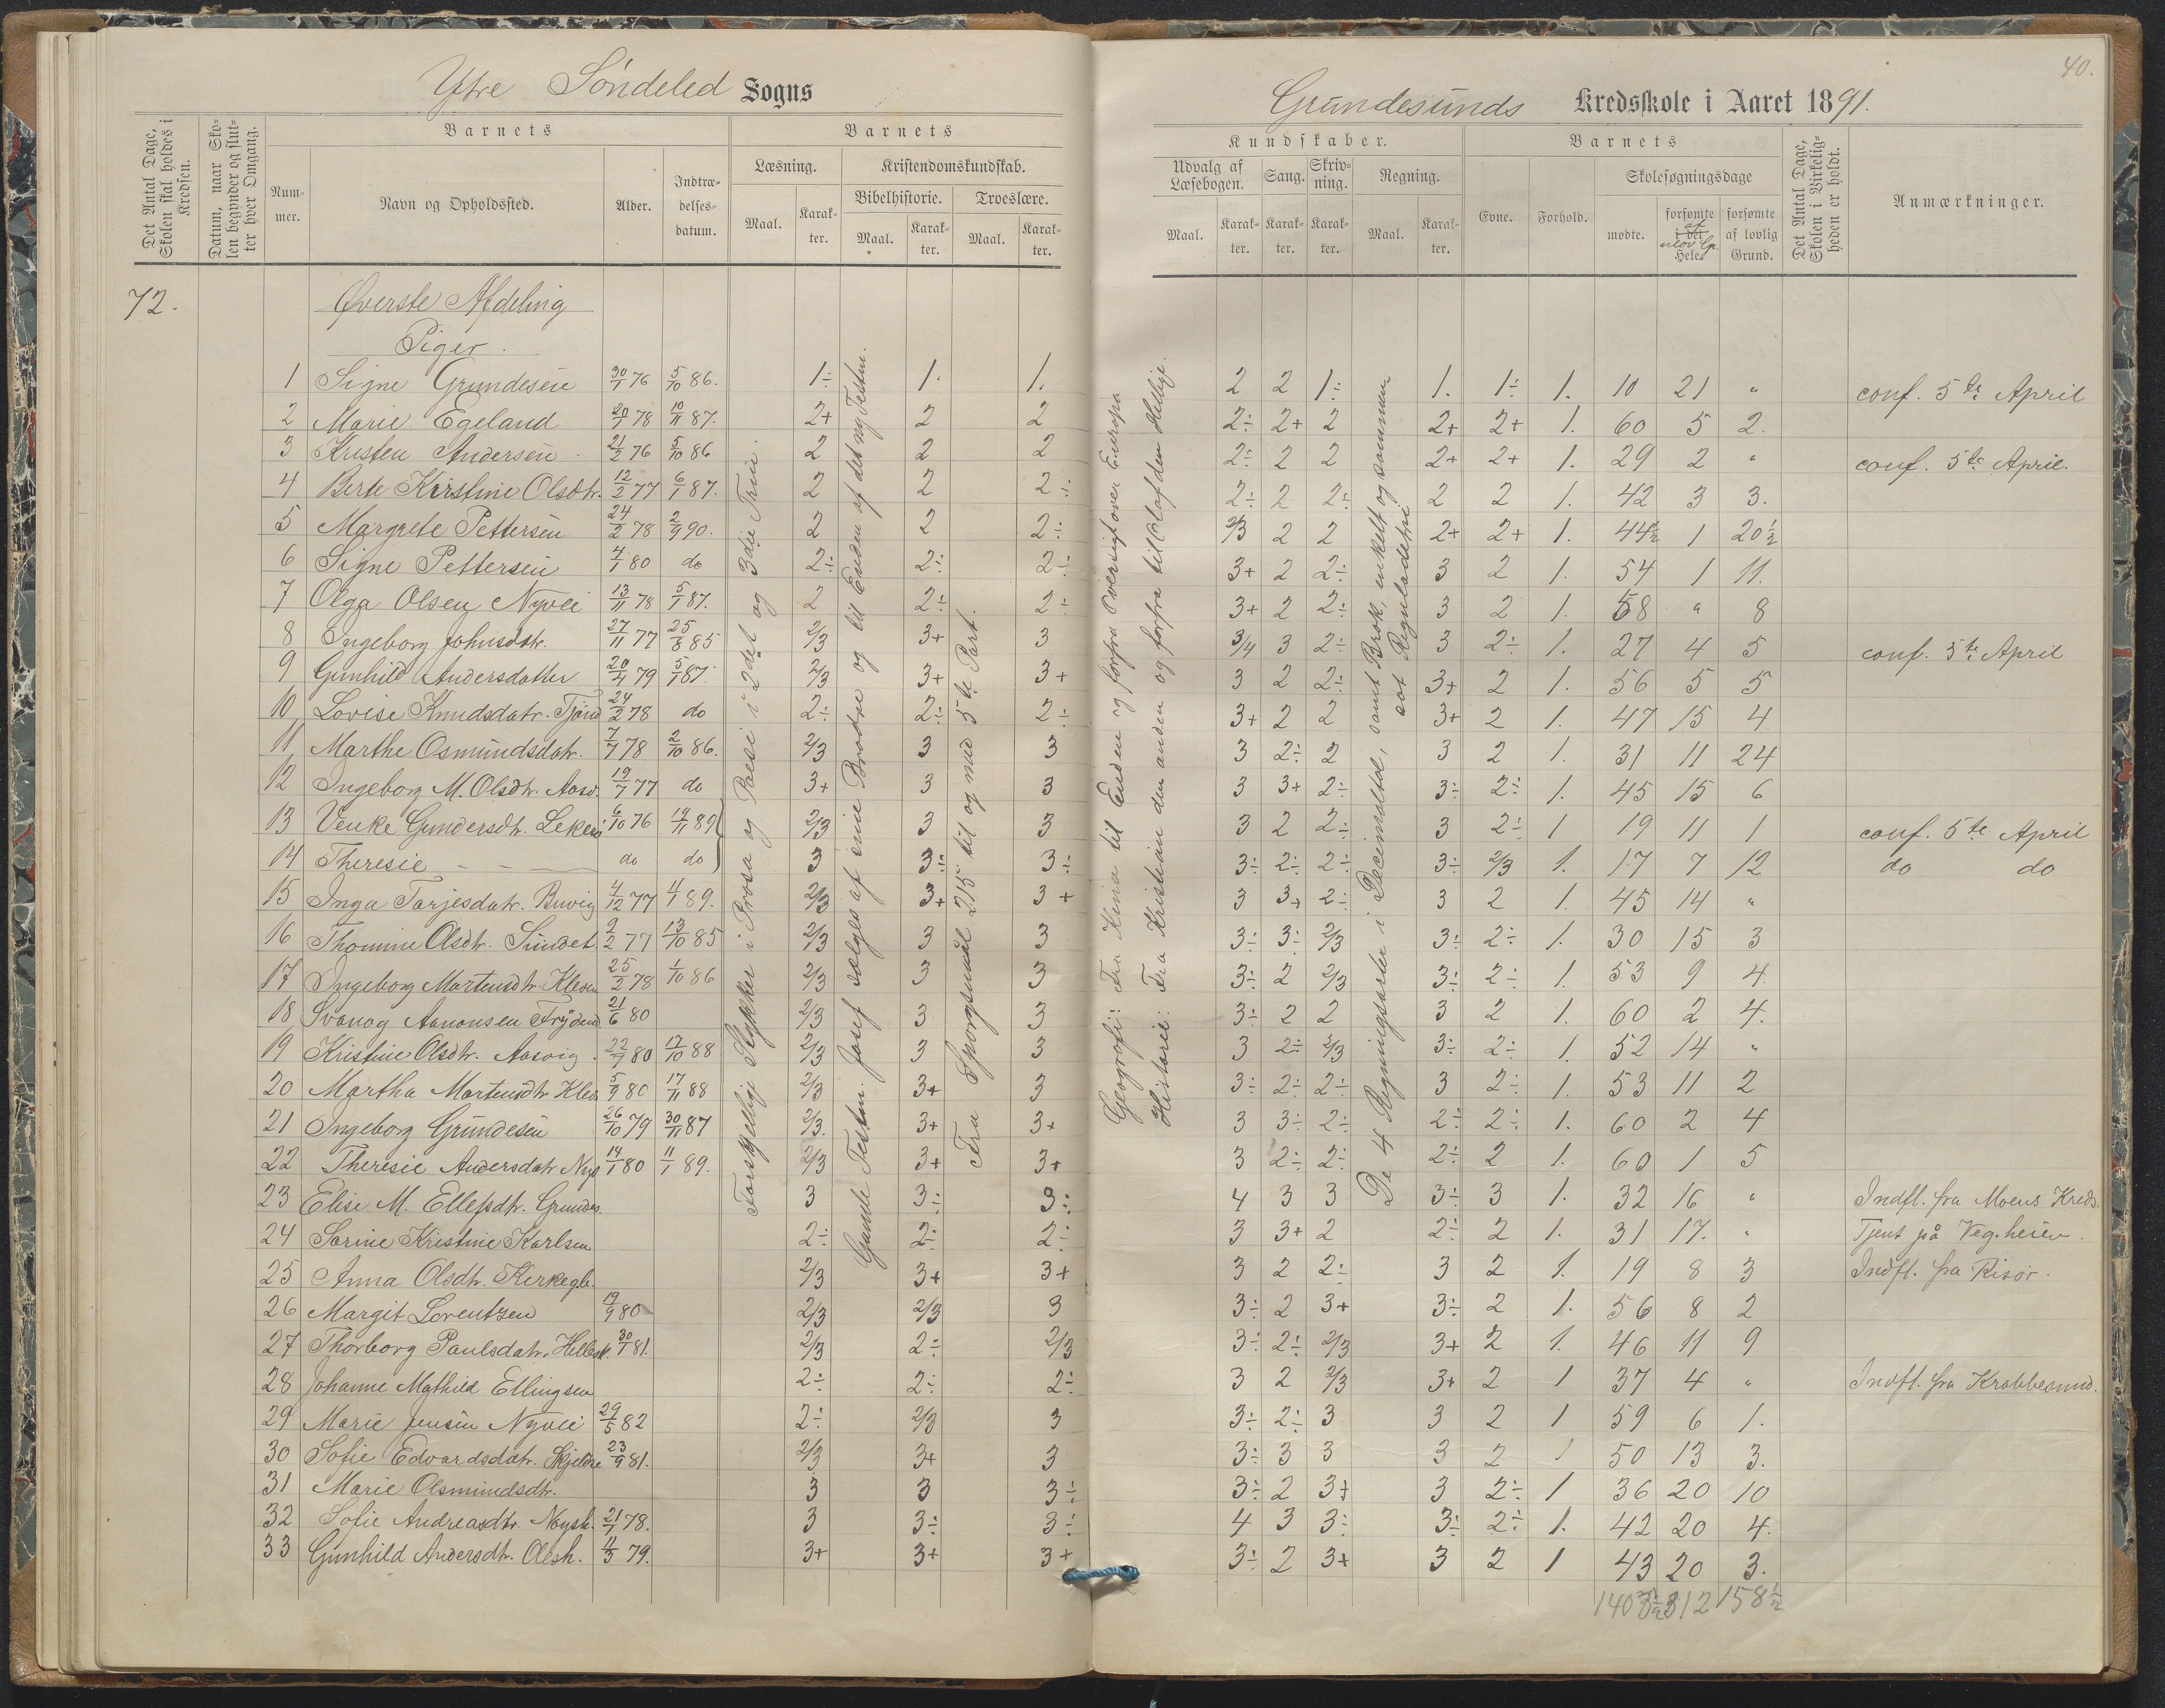 40.
Ytre Söndeled Sogns
Grundesunds Kredsskole i Aaret 1891.
Det Antal Dage, Skolen skal holdes i Kredsen.
Datum, naar Skolen begynder og slutter hver Omgang.
Barnets
Nummer.
Navn og Opholdssted.
Alder.
Indtrædelsesdatum.
Barnets
Læsning.
Maal.
Karakter.
Kristendomskundskab.
Bibelhistorie.
Maal.
Karakter.
Troeslære.
Maal.
Karakter.
Kundskaber.
Udvalg af Læsebogen.
Maal.
Karakter.
Sang.
Karakter.
Skrivning.
Karakter.
Regning.
Maal.
Karakter.
Barnets
Evne.
Forhold.
Skolesøgningsdage
mødte.
forsømte i det Hele.
af ulov Gr.
forsømte af lovlig Grund.
Det Antal Dage, Skolen i Virkeligheden er holdt.
Anmærkninger.
72.
Øverste Afdeling
Piger.
Forskjellige Stykker i Prosa og Poesi i 2det og 3die Trin.
Gamle Testm. Josef sælges af sine Brødre og til Enden af det ny Testm.
Fra Spørgsmål 215 til og med 5te Part.
Geografi: Fra Kina til Enden og forfra Oversigt over Europa
Historie: Fra Kristian den anden og forfra til Olaf den Hellige.
De 4 Regningsarter i Decimaltal, samt Brøk, enkelt og sammen
sat Reguladetri
1 Signe Grundesen 30/1 76 5/10 86. 1÷ 1. 1. 2 2 1÷ 1. 1÷ 1. 10 21 " conf. 5te April
2 Marie Egeland 20/7 78 10/11 87. 2+ 2 2 2÷ 2+ 2 2+ 2+ 1. 60 5 2.
3 Kristen Andersen 21/2 76 5/10 86 2 2 2 2÷ 2 2 2+ 2+ 1. 29 2 " conf. 5te April.
4 Berte Kirstine Olsdtr. 12/2 77 6/1 87. 2 2 2÷ 2÷ 2 2÷ 2 2 1. 42 3 3.
5 Margrete Pettersen 24/2 78 2/9 90. 2 2 2÷ 2/3 2 2 2+ 2+ 1. 44½ 1 20½
6 Signe Pettersen 4/1 80 do 2÷ 2÷ 2÷ 3+ 2 2÷ 3 2 1. 54 1 11.
7 Olga Olsen Nyvei 13/11 78 5/1 87. 2 2÷ 2÷ 3+ 2 2÷ 3 2 1. 58 " 8
8 Ingeborg Johnsdtr. 27/11 77 25/8 85 2/3 3+ 3 3/4 3 2÷ 3 2÷ 1. 27 4 5 conf. 5te April
9 Gunhild Andersdatter 20/4 79 5/1 87. 2/3 3+ 3+ 3 2 2÷ 3+ 2 1. 56 5 5
10 Lovise Knudsdatr. Tjönd 24/2 78 do 2÷ 2÷ 2÷ 3+ 2 2 3+ 2 1. 47 15 4
11 Marthe Osmundsdatr. 7/7 78 2/10 86. 2/3 3 3 3 2÷ 2 3 2 1. 31 11 24
12 Ingeborg M. Olsdtr. Aasv. 19/7 77 do 3+ 3 3 3 3+ 2÷ 3÷ 2÷ 1. 45 15 6
13 Venke Gundersdtr. 6/10 76 14/11 89 2/3 3 3 3 2 2÷ 3 2÷ 1 19 11 1 conf. 5te April
14 Theresie — — do do 3 3÷ 3÷ 3÷ 2÷ 2÷ 3÷ 2/3 1. 17 7 12 do do
15 Inga Tarjesdatr. Buvig 4/12 77 4/1 89. 2/3 3+ 3+ 3 3+ 2÷ 3 2 1. 45 14 "
16 Thomine Olsdtr. Sundet. 2/2 77 13/10 85 2/3 3 3 3÷ 3÷ 2/3 3÷ 2÷ 1. 30 15 3
17 Ingeborg Martensdtr. Kleven 25/2 78 1/10 86 2/3 3 3 3÷ 2 2/3 3÷ 2÷ 1. 53 9 4.
18 Svanog Aanonsen 21/6 80 2/3 3 3 3÷ 2 2 3 2 1. 60 2 4.
19 Kristine Olsdtr. Aasvig. 22/7 80 17/10 88 2/3 3 3 3 2÷ 2/3 3÷ 2÷ 1. 52 14 "
20 Martha Martensdtr. Klev. 5/9 80 17/11 88 2/3 3+ 3 3÷ 2÷ 2÷ 3 2÷ 1. 53 11 2
21 Ingeborg Grundesen 26/10 79 30/11 87 2/3. 3+ 3+ 3 3÷ 2÷ 2÷ 2÷ 1. 60 2 4
22 Theresie Andersdatr Nys 14/1 80 11/1 89. 2/3 3+ 3+ 3 2÷ 2÷ 2÷ 2 1. 60 1 5
23 Elise M. Ellefsdtr. Grundes. 3 3÷ 3÷ 4 3 3 3÷ 3 1. 32 16 " Indfl. fra Moens Kreds.
24 Sörine Kristine Karlsen 2÷ 2÷ 2÷ 3 3+ 2 2÷ 2 1. 31 17. " Tjent på Veg.heien.
25 Anna Olsdtr. Kirkegb. 2/3 3+ 3+ 3 2 2÷ 3 2 1. 19 8 3 Indfl. fra Risör.
26 Margit Lorentzen 19/9 80 2/3 2/3 3 3÷ 2 3+ 3÷ 2 1. 56 8 2
27 Thorborg Paulsdatr. Hellesk. 30/1 81. 2/3 2÷ 2/3 3÷ 2÷ 2/3 3+ 2 1. 46 11 9
28 Johanne Mathild Ellingsen 2÷ 2÷ 2÷ 3 2 2/3 3+ 2 1 37 4 " Indfl. fra Krabbesund.
29 Marie Jensen Nyvei 29/5 82 2÷ 2/3 3 3÷ 2÷ 3 3 2 1 59 6 1.
30 Sofie Edvardsdatr. 23/9 81. 2/3 3+ 3 3÷ 3 3 3 2 1 50 13 3.
31 Marie Osmundsdtr. 3 3 3÷ 3÷ 2 3+ 3 2÷ 1 36 20 10
32 Sofie Andreasdtr. 21/1 78. 3 3÷ 3÷ 4 3 3÷ 3÷ 2÷ 1. 42 20 4.
33 Gunhild Andersdtr. 4/3 79. 3+ 3+ 3+ 3÷ 2 3+ 3 2 1 43 20 3.
312 158½